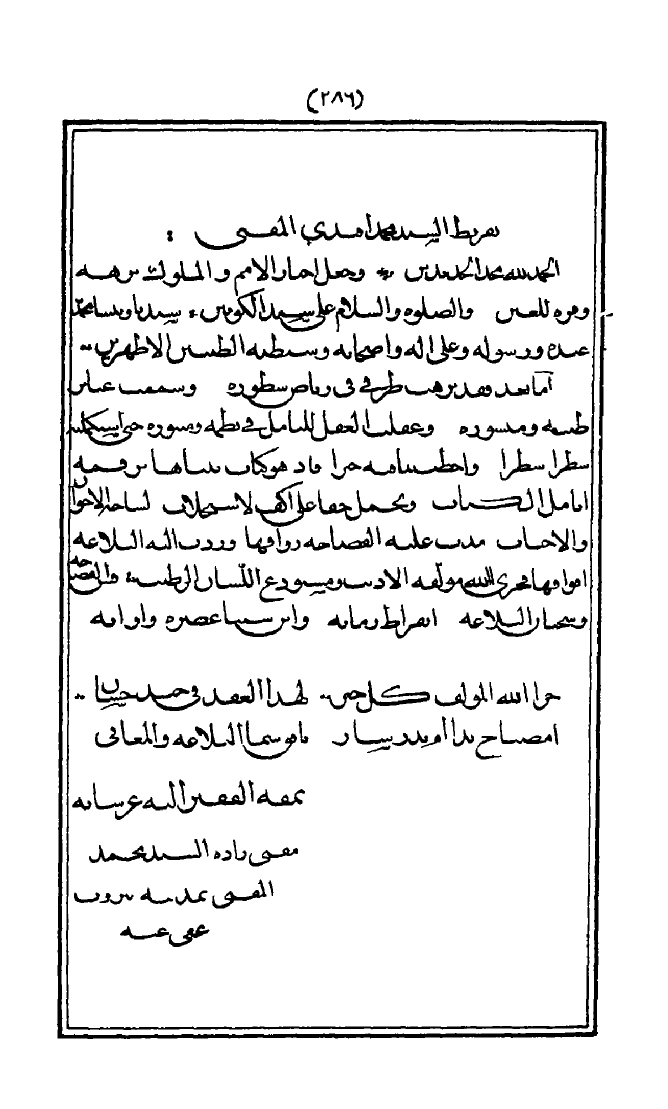 (٢٨٦)
تقريظ السيد محمد افندي المفتي :
الحمد لله وجعل اخبار الامم والملوك نزهة
وقرة للعين والصلوة والسلام على سيد الكونين سيدنا ونبينا محمد
عبده ورسوله وعلى اله واصحابه وسبطيه الطيبين الاطهرين
اما بعد فقد نزهت طرفي في رياض سطوره وسمعت
ومنثوره وعقلت العقل للتامل في نظمه ومنثوره حتى استكملته
سطرا سطرا واحطت به خبرا فاذ هو كتاب
انامل الكتاب ويحمل حقا على اكف لساحة الاخوان
والاحباب مدت عليه الفصاحه رواقها البلاغه
فجزى الله مولفه الاديب ومستودع اللسان الرطيب والفصاحه
وسحبان البلاغه ابقراط زمانه وابن سينا عصره واوانه
جزا الله المولف كل خير لهذا العقد في جيد حسان
امصباح بدا ام بدر سار سما البلاغه والمعاني
نمقه الفقير اليه عز شانه
مفتي زاده السيد محمد
المفتي بمدينة بيروت
عفي عنه